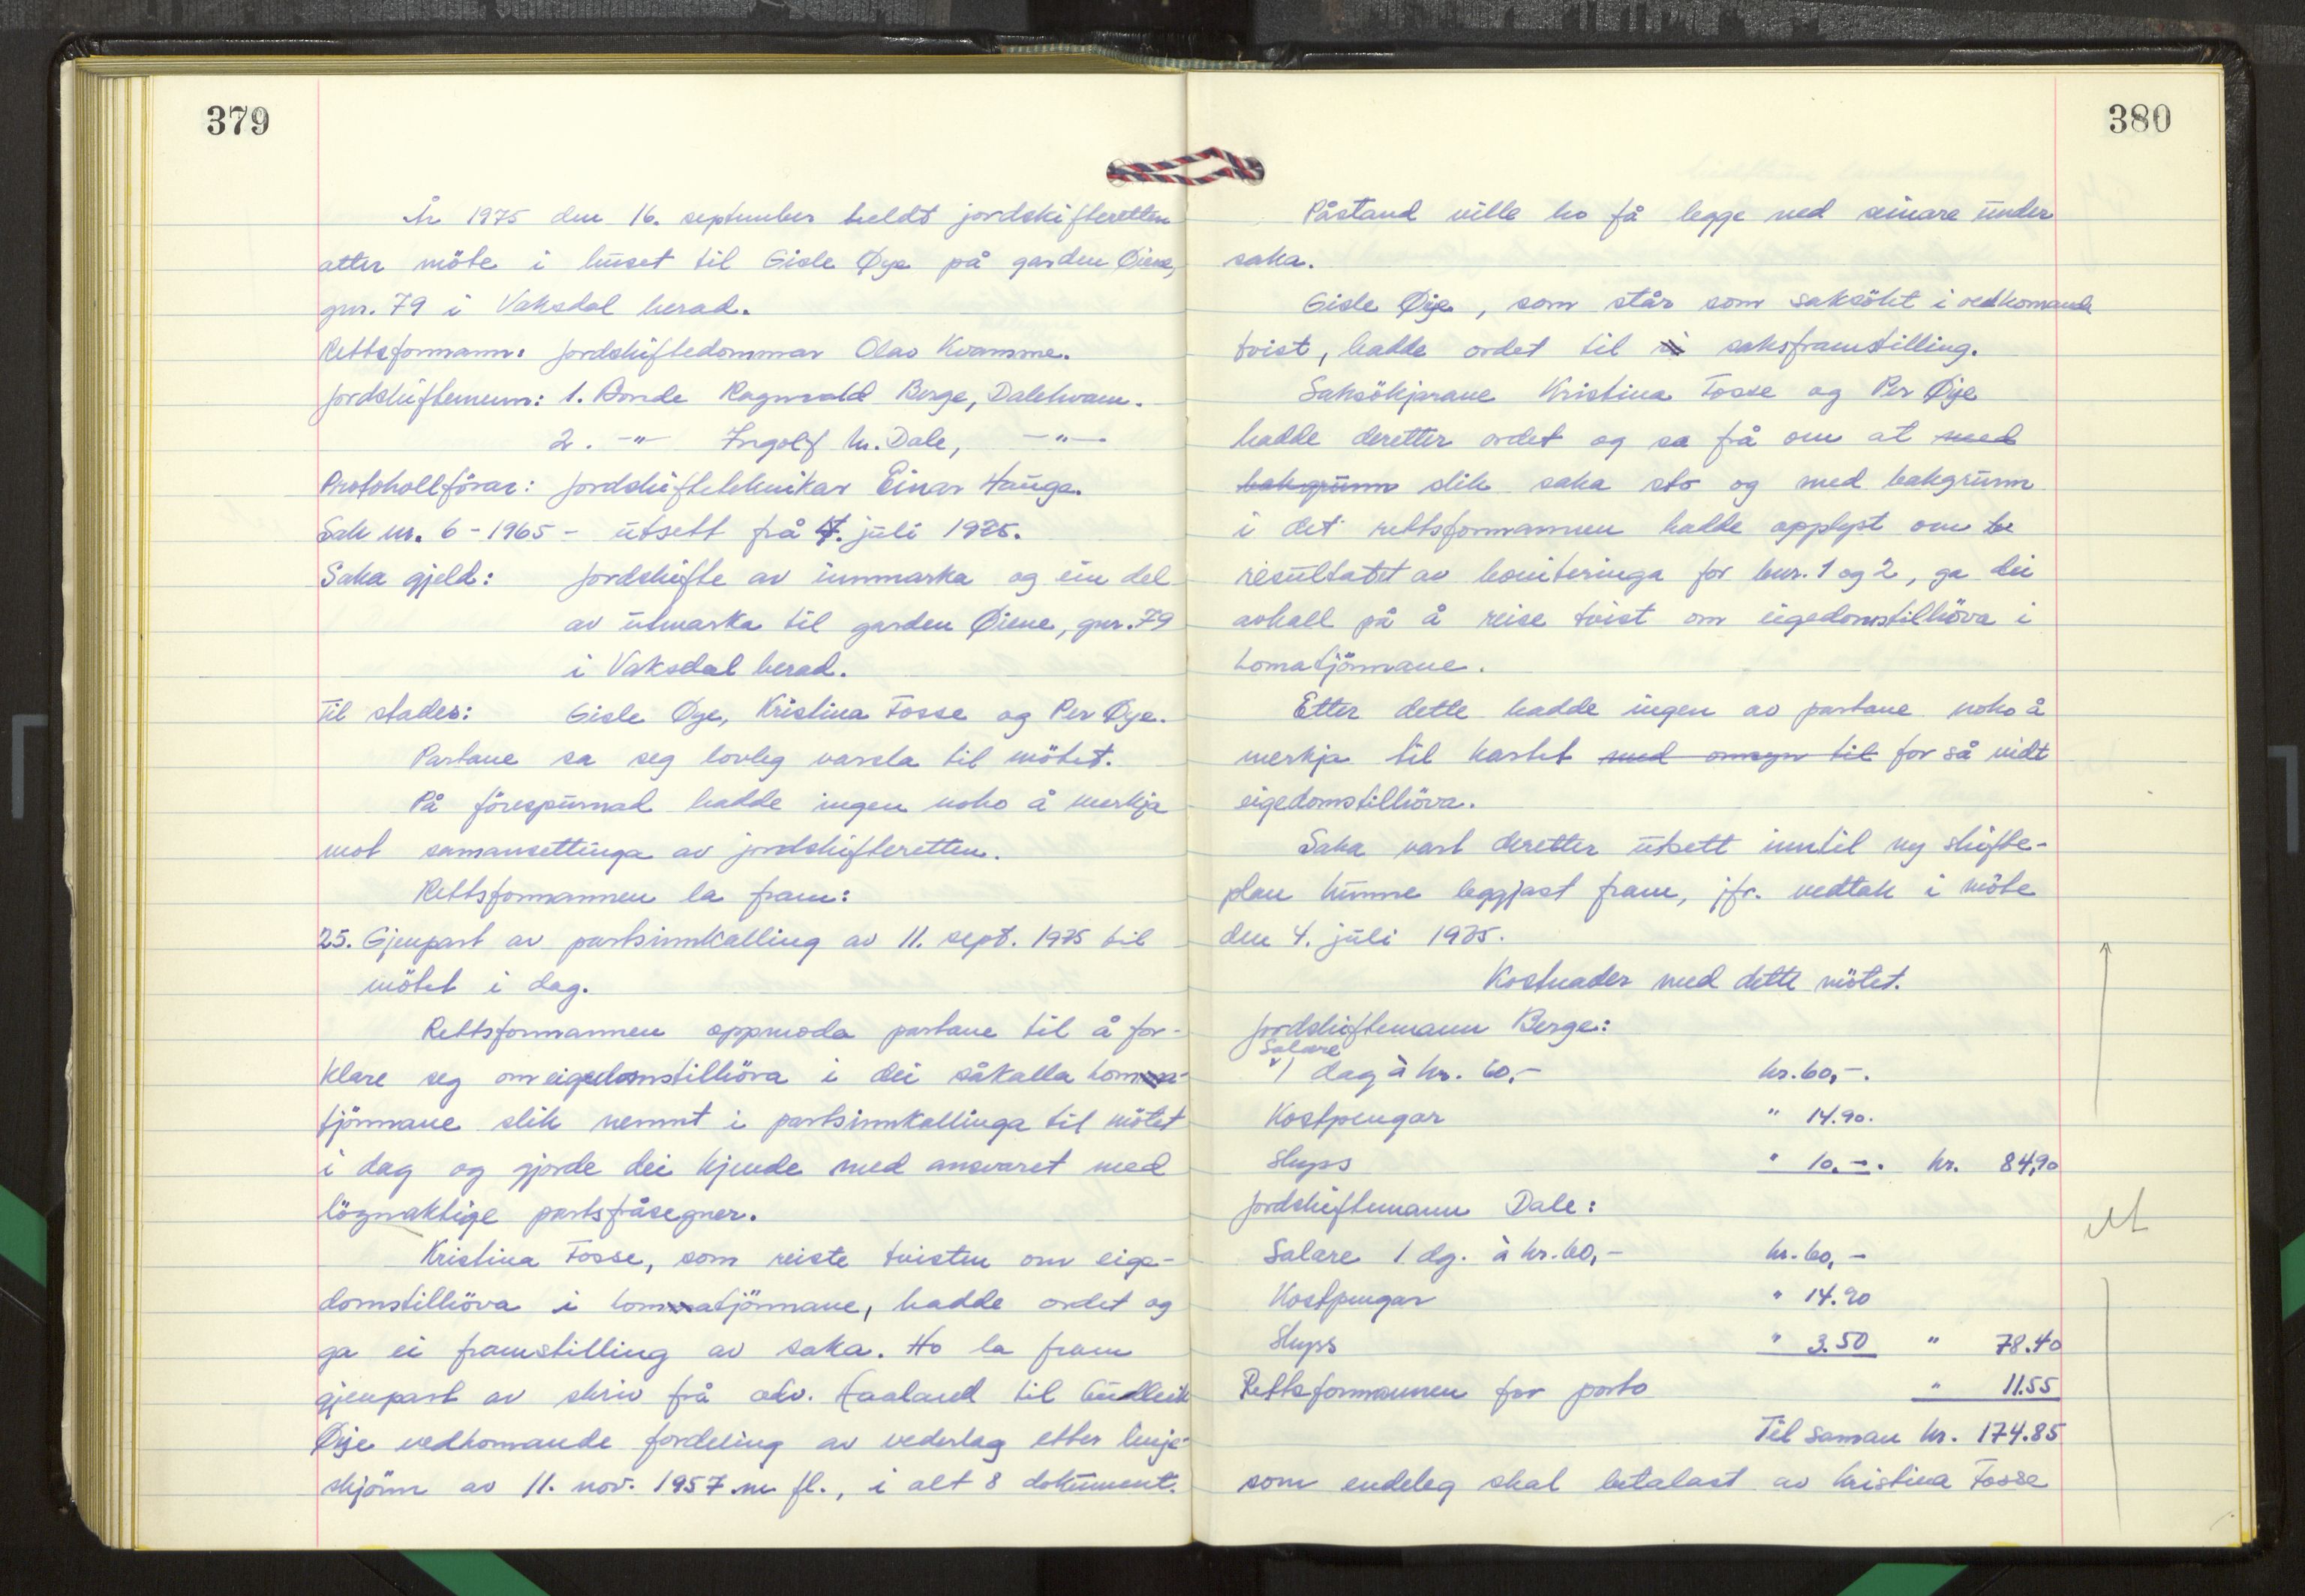 379
År 1975 den 16. september heldt jordskifteretten
atter möte i huset til Gisle Øye på garden Øiene,
gnr. 79 i Vaksdal herad.
Rettsformann: Jordskiftedommar Olav Kvamme.
Jordskiftemenn: 1. Bonde Ragnvald Berge, Dalekvam.
2. -"- Ingolf M. Dale, -"-
Protokollförar: Jordskifteteknikar Einar Hauga.
Sak nr. 6-1965 - utsett frå 4. juli 1975.
Saka gjeld: Jordskifte av innmarka og ein del
av utmarka til garden Øiene, gnr. 79
i Vaksdal herad.
Til stades: Gisle Øye, Kristina Fosse og Per Øye.
Partane sa seg lovleg varsla til mötet.
På förespurnad hadde ingen noko å merkja
mot samansettinga av jordskifteretten.
Rettsformannen la fram:
25. Gjenpart av partsinnkalling av 11. sept. 1975 til
mötet i dag.
Rettsformannen oppmoda partane til å for-
klare seg om eigedomstilhöva i dei såkalla Loma-
tjönnane slik nemnt i partsinnkallinga til mötet
i dag og gjorde dei kjende med ansvaret med
lögnaktige partsfråsegner.
Kristina Fosse, som reiste tvisten om eige-
domstilhöva i Lomatjönnane, hadde ordet og
ga ei framstilling av saka. Ho la fram
gjenpart av skriv frå adv. Haaland til Gudleik
Øye vedkomande fordeling av vederlag etter linje-
skjönn av 11. nov. 1957 m fl., i alt 8 dokument.
380
Påstand ville ho få legge ned seinare under
saka.
Gisle Øye, som står som saksökt i vedkomande
tvist, hadde ordet til saksframstilling.
Saksökjarane Kristina Fosse og Per Øye
hadde deretter ordet og sa frå om at med
bakgrunn slik saka sto og med bakgrunn
i det rettsformannen hadde opplyst om
resultatet av boniteringa for bnr. 1 og 2, ga dei
avkall på å reise tvist om eigedomstilhöva i
Lomatjönnane.
Etter dette hadde ingen av partane noko å
merkja til kartet med omsyn til for så vidt
eigedomstilhöva.
Saka vart deretter utsett inntil ny skifte-
plan kunne leggjast fram, jfr. vedtak i möte
den 4. juli 1975.
Kostnader med dette mötet.
Jordskiftemann Berge:
Salare
1 dag à kr. 60,- kr. 60,-.
Kostpengar " 14.90.
Skyss " 10.-. kr. 84,90
Jordskiftemann Dale:
Salare 1 dg. à kr. 60,- kr. 60,-
Kostpengar " 14.90
Skyss " 3.50 " 78.40
Rettsformannen for porto " 11.55
Til saman kr. 174.85
som endeleg skal betalast av Kristina Fosse